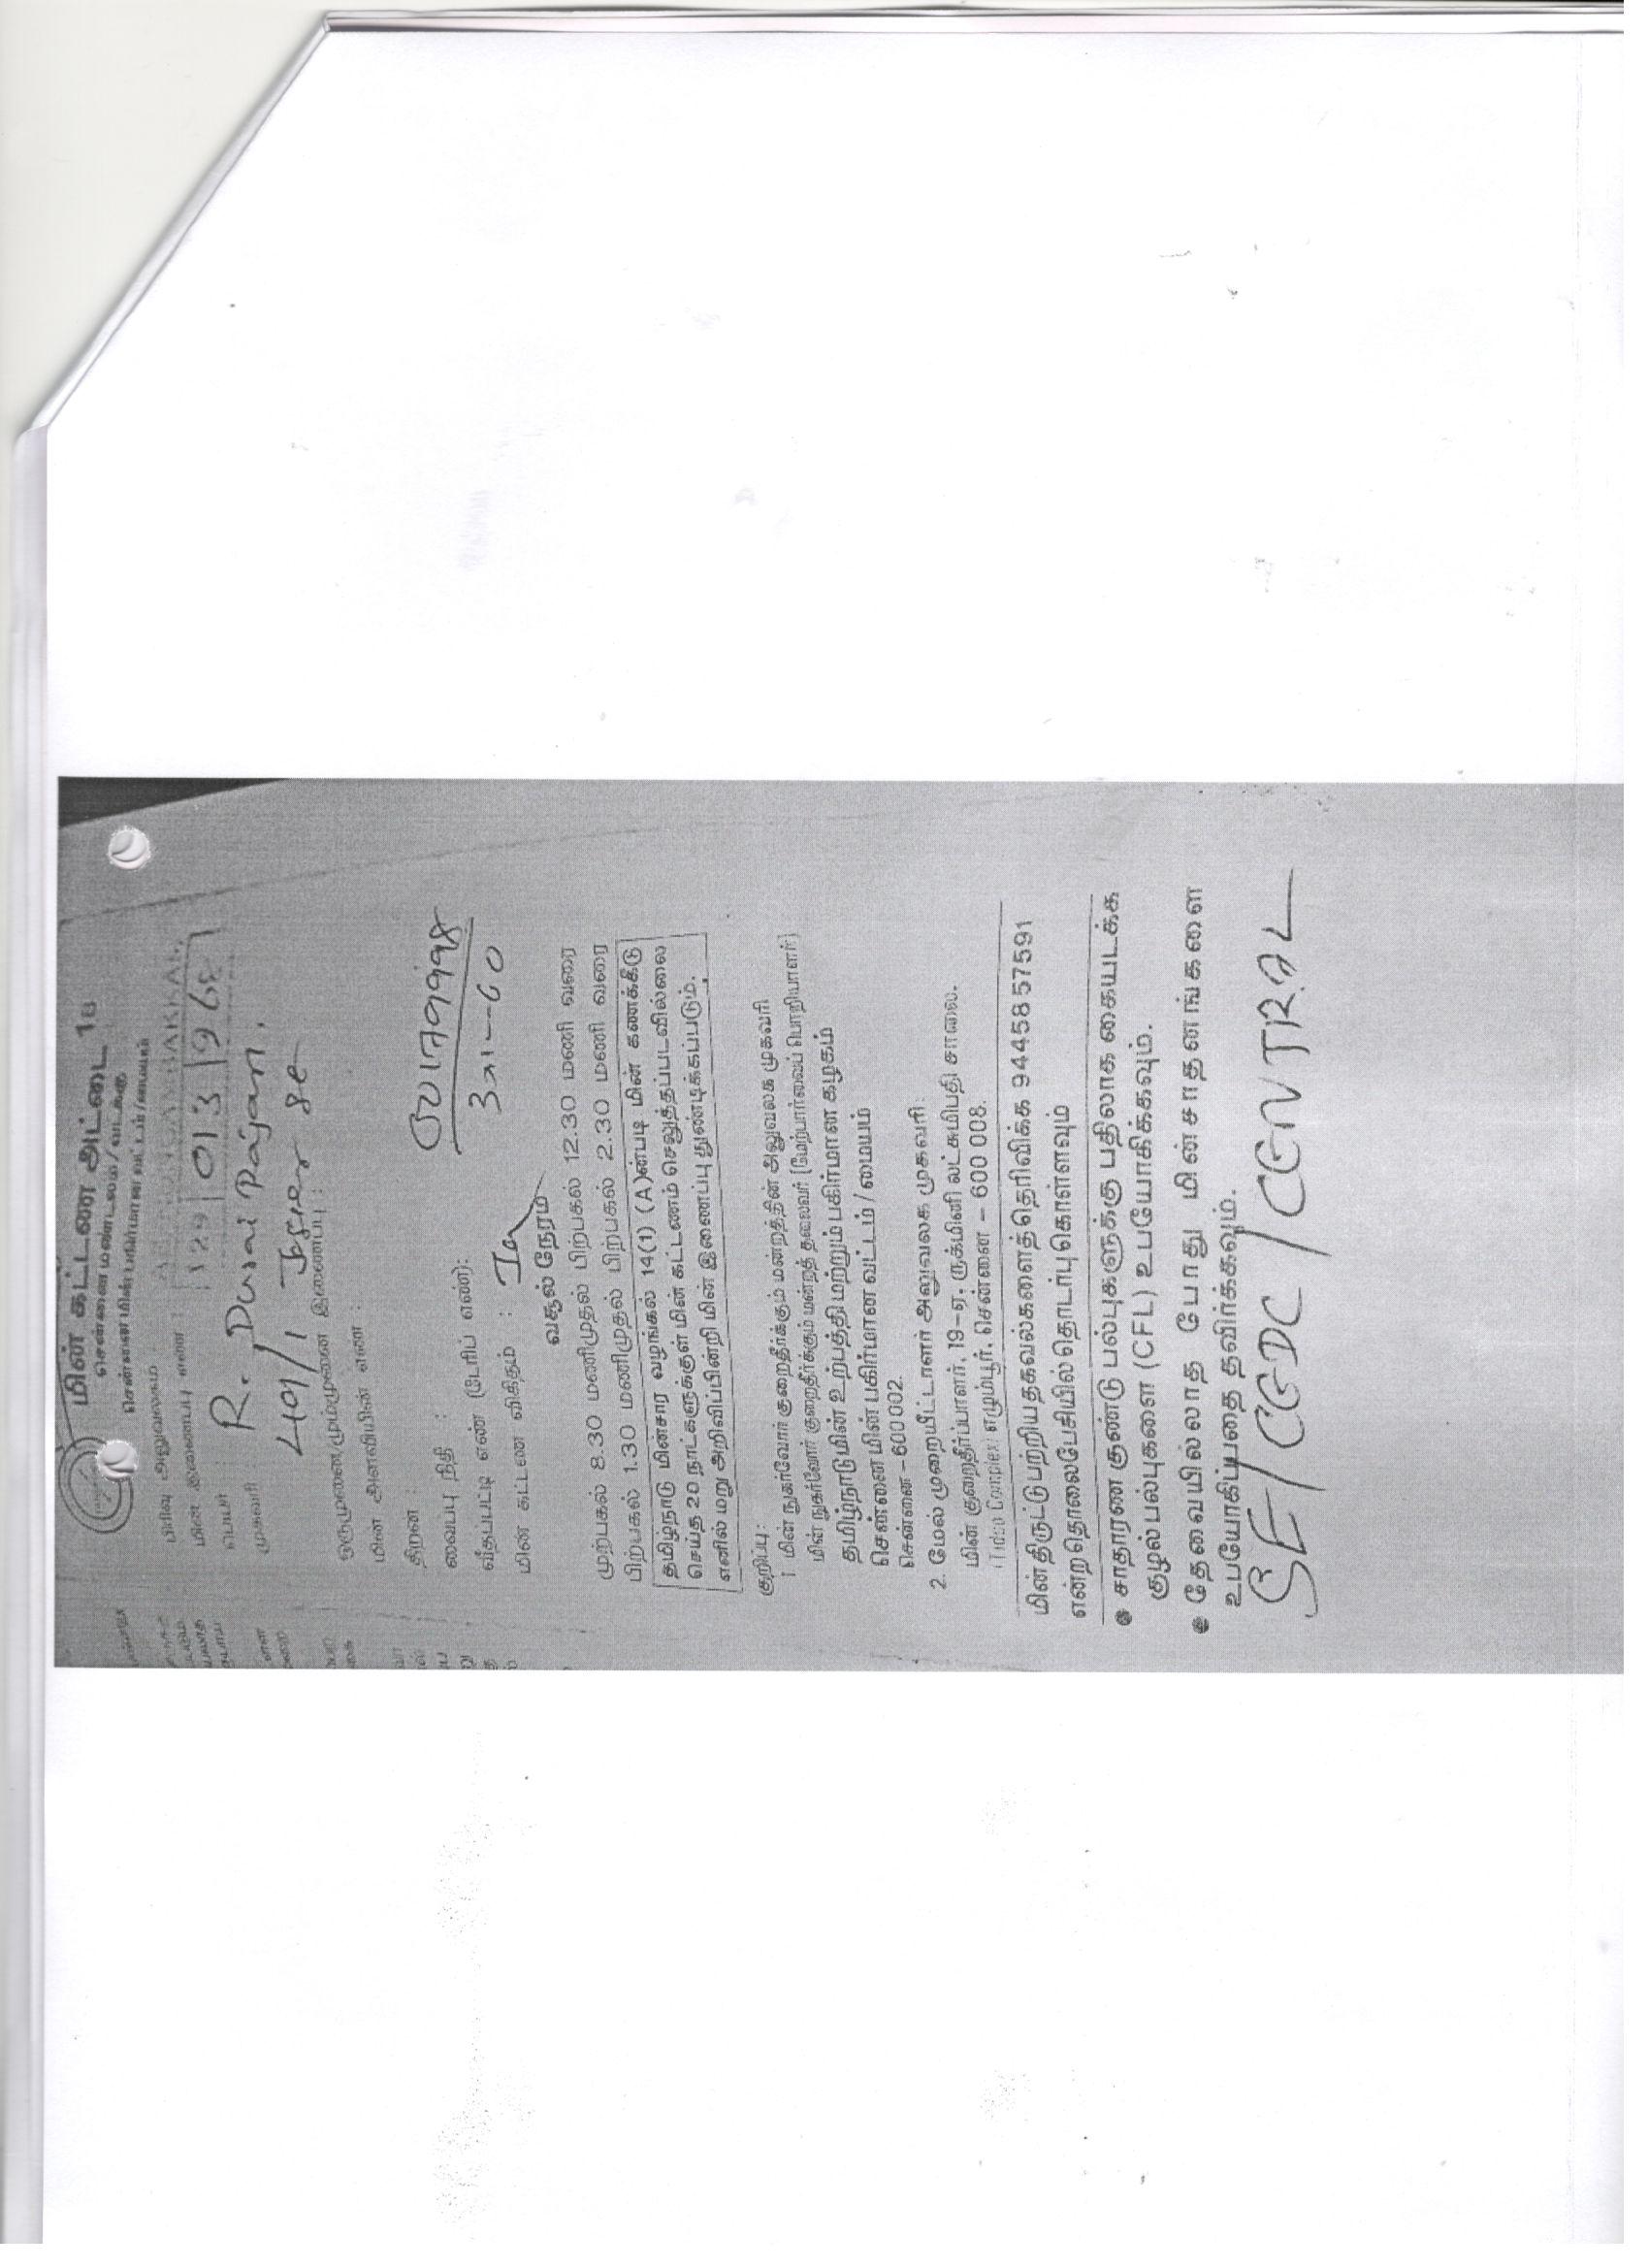 மின் கட்டண அட்டை
சென்னை மண்டலம் / வடக்கு
சென்னை மின் பகிர்மான வட்டம்/மையம்
பிரிவு அலுவலகம் :
மின் இணைப்பு எண் : 129 013 96
பெயர் : R. Durai Rajan.
முகவரி 401/1
ஒருமுனை/மும்முனை இணைப்பு :
மின் அளவியின் எண் :
திறன் :
வைப்பு நிதி :
வீதப்பட்டி எண் (டேரிப் எண்):
மின் கட்டண விகிதம் : Ia
வசூல் நேரம்
முற்பகல் 8.30 மணிமுதல் பிற்பகல் 12.30 மணி வரை
பிற்பகல் 1.30 மணிமுதல் பிற்பகல் 2.30 மணி வரை
தமிழ்நாடு மின்சார வழங்கல் 14(1) (A)ன்படி மின் கணக்கீடு
செய்த 20 நாட்களுக்குள் மின் கட்டணம் செலுத்தப்படவில்லை
எனில் மறு அறிவிப்பின்றி மின் இணைப்பு துண்டிக்கப்படும்.
குறிப்பு:
1. மின் நுகர்வோர் குறைதீர்க்கும் மன்றத்தின் அலுவலக முகவரி
மின் நுகர்வோர் குறைதீர்க்கும் மன்றத் தலைவர் (மேற்பார்வைப் பொறியாளர்)
தமிழ்நாடு மின் உற்பத்தி மற்றும் பகிர்மான கழகம்
சென்னை மின் பகிர்மான வட்டம் / மையம்
சென்னை – 600 002.
2. மேல் முறையீட்டாளர் அலுவலக முகவரி:
மின் குறைதீர்ப்பாளர், 19–ஏ, ருக்மினி லட்சுமிபதி சாலை,
(Tidco Complex) எழும்பூர், சென்னை – 600 008.
மின் திருட்டு பற்றிய தகவல்களைத் தெரிவிக்க 94458 57591
என்ற தொலைபேசியில் தொடர்பு கொள்ளவும்
சாதாரண குண்டு பல்புகளுக்கு பதிலாக கையடக்க
குழல் பல்புகளை (CFL) உபயோகிக்கவும்.
தேவையில்லாத போது மின்சாதனங்களை
உபயோகிப்பதை தவிர்க்கவும்.
SE/CEDC/CENTRAL